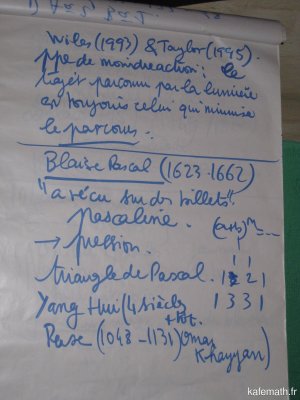 Wiles (1993) & Taylor (1995).
ppe de moindre action : le
trajet parcouru par la lumière
est toujours celui qui minimise
le parcours.
Blaise Pascal (1623-1662)
"a vécu sur des billets".
pascaline. (a+b)^n = ...
→ pression. 1
1 1
triangle de Pascal. 1 2 1
Yang Hui (4 siècles 1 3 3 1
+ tôt.
Perse (1048-1131) Omar
Khayyam)
kafemath.fr